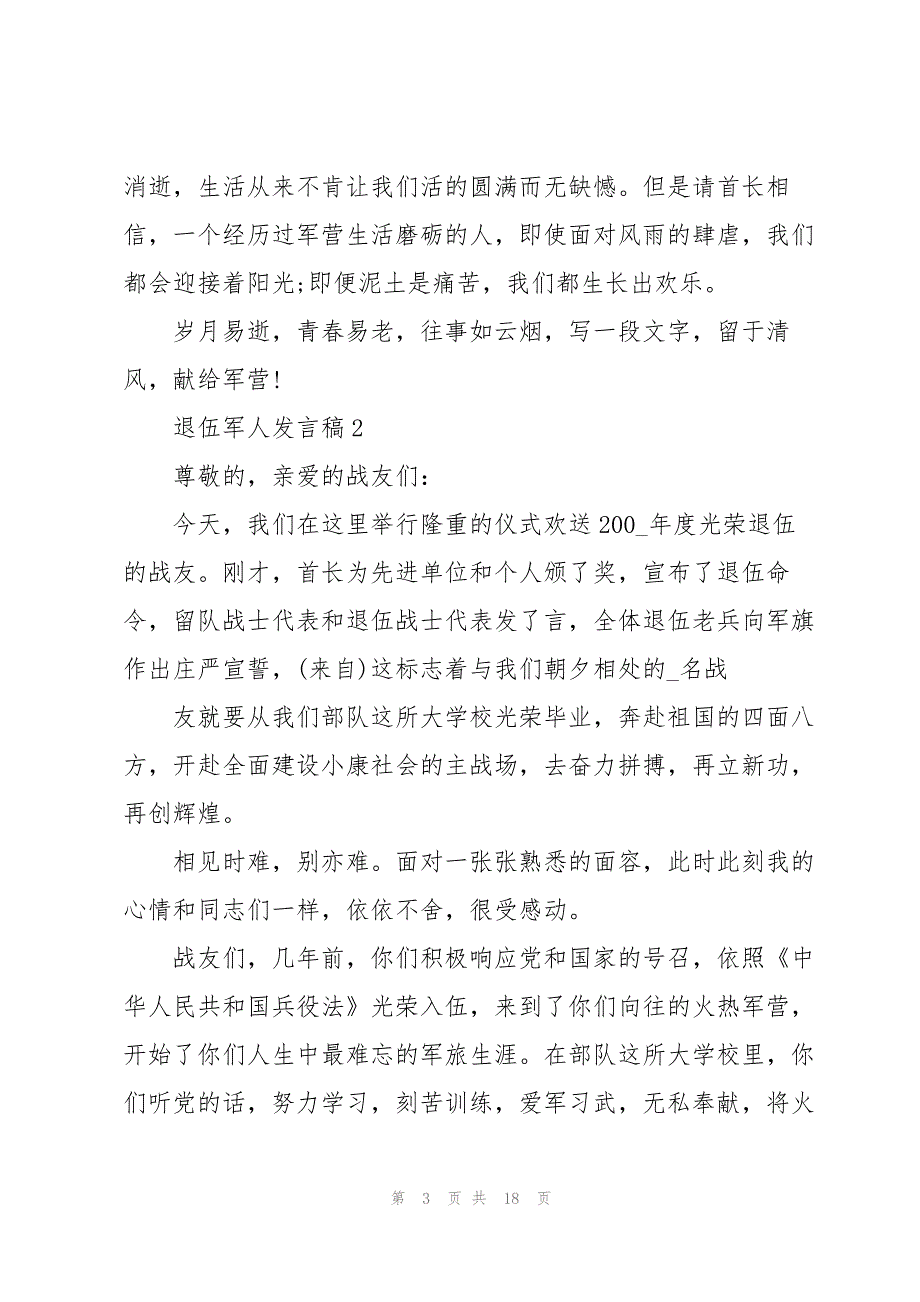 消逝，生活从来不肯让我们活的圆满而无缺憾。但是请首长相
信，一个经历过军营生活磨砺的人，即使面对风雨的肆虐，我们
都会迎接着阳光;即便泥土是痛苦，我们都生长出欢乐。
岁月易逝，青春易老，往事如云烟，写一段文字，留于清
风，献给军营!
退伍军人发言稿2
尊敬的，亲爱的战友们：
今天，我们在这里举行隆重的仪式欢送200_年度光荣退伍
的战友。刚才，首长为先进单位和个人颁了奖，宣布了退伍命
令，留队战士代表和退伍战士代表发了言，全体退伍老兵向军旗
作出庄严宣誓，(来自)这标志着与我们朝夕相处的_名战
友就要从我们部队这所大学校光荣毕业，奔赴祖国的四面八
方，开赴全面建设小康社会的主战场，去奋力拼搏，再立新功，
再创辉煌。
相见时难，别亦难。面对一张张熟悉的面容，此时此刻我的
心情和同志们一样，依依不舍，很受感动。
战友们，几年前，你们积极响应党和国家的号召，依照《中
华人民共和国兵役法》光荣入伍，来到了你们向往的火热军营，
开始了你们人生中最难忘的军旅生涯。在部队这所大学校里，你
们听党的话，努力学习，刻苦训练，爱军习武，无私奉献，将火
第 3 页 共 18 页